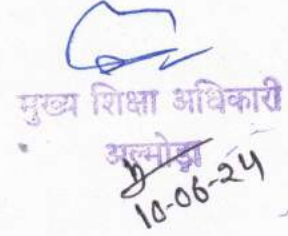 मुख्य शिक्षा अधिकारी
अल्मोड़ा
10-06-24